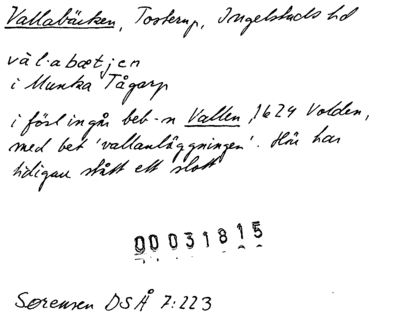 Vallabäcken, Tosterup, Ingelstads hd
väl·abætjen
i Munka Tågarp
i förl ingår beb-n Vallen, 1624 Volden,
med bet 'vallanläggningen'. Här har
tidigare stått ett slott
00031815
Sørensen DSÅ 7:223